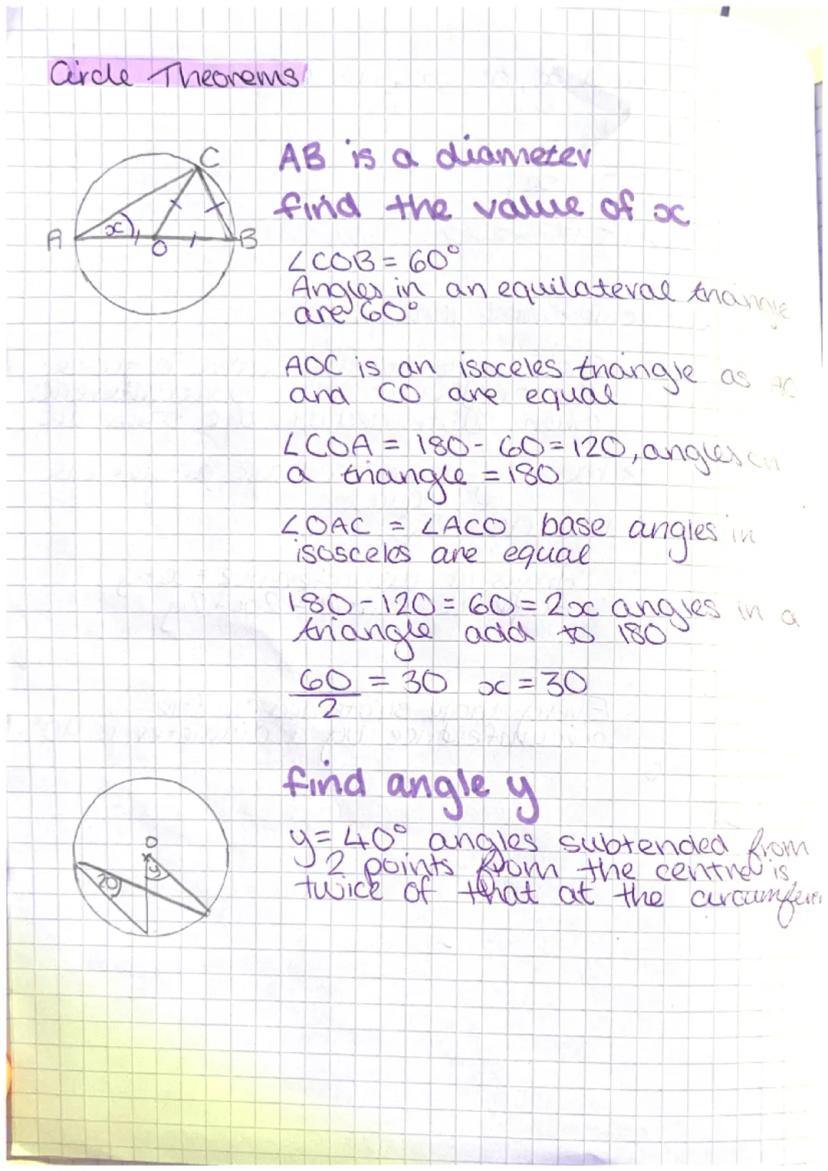 Circle Theorems
C
A
x
O
B
AB is a diameter
find the value of x
∠COB = 60°
Angles in an equilateral triangle
are 60°
AOC is an isoceles triangle as
and CO are equal
∠COA = 180 - 60 = 120, angles in
a triangle = 180
∠OAC = ∠ACO base angles in
isosceles are equal
180 - 120 = 60 = 2x angles in a
triangle add to 180
60/2 = 30 x = 30
find angle y
O
20
y
y = 40° angles subtended from
2 points from the centre is
twice of that at the